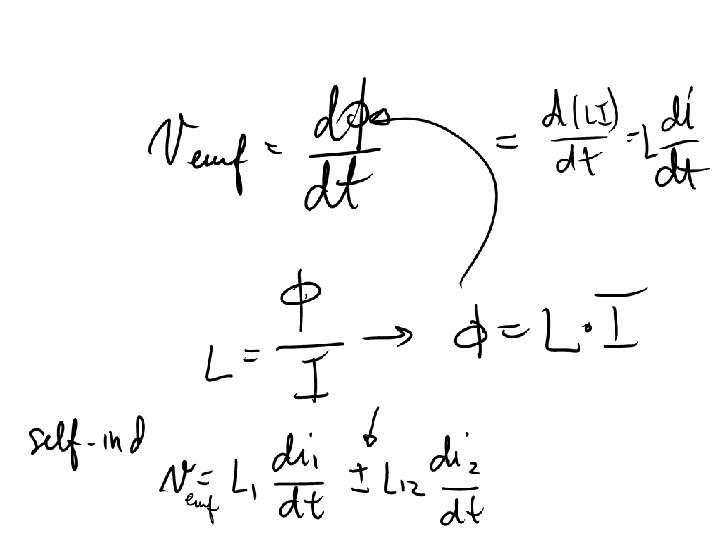 V_emf = dϕ/dt = d(LI)/dt = L di/dt
L = ϕ/I → ϕ = L · I
self-ind
V_emf = L₁ di₁/dt ± L₁₂ di₂/dt